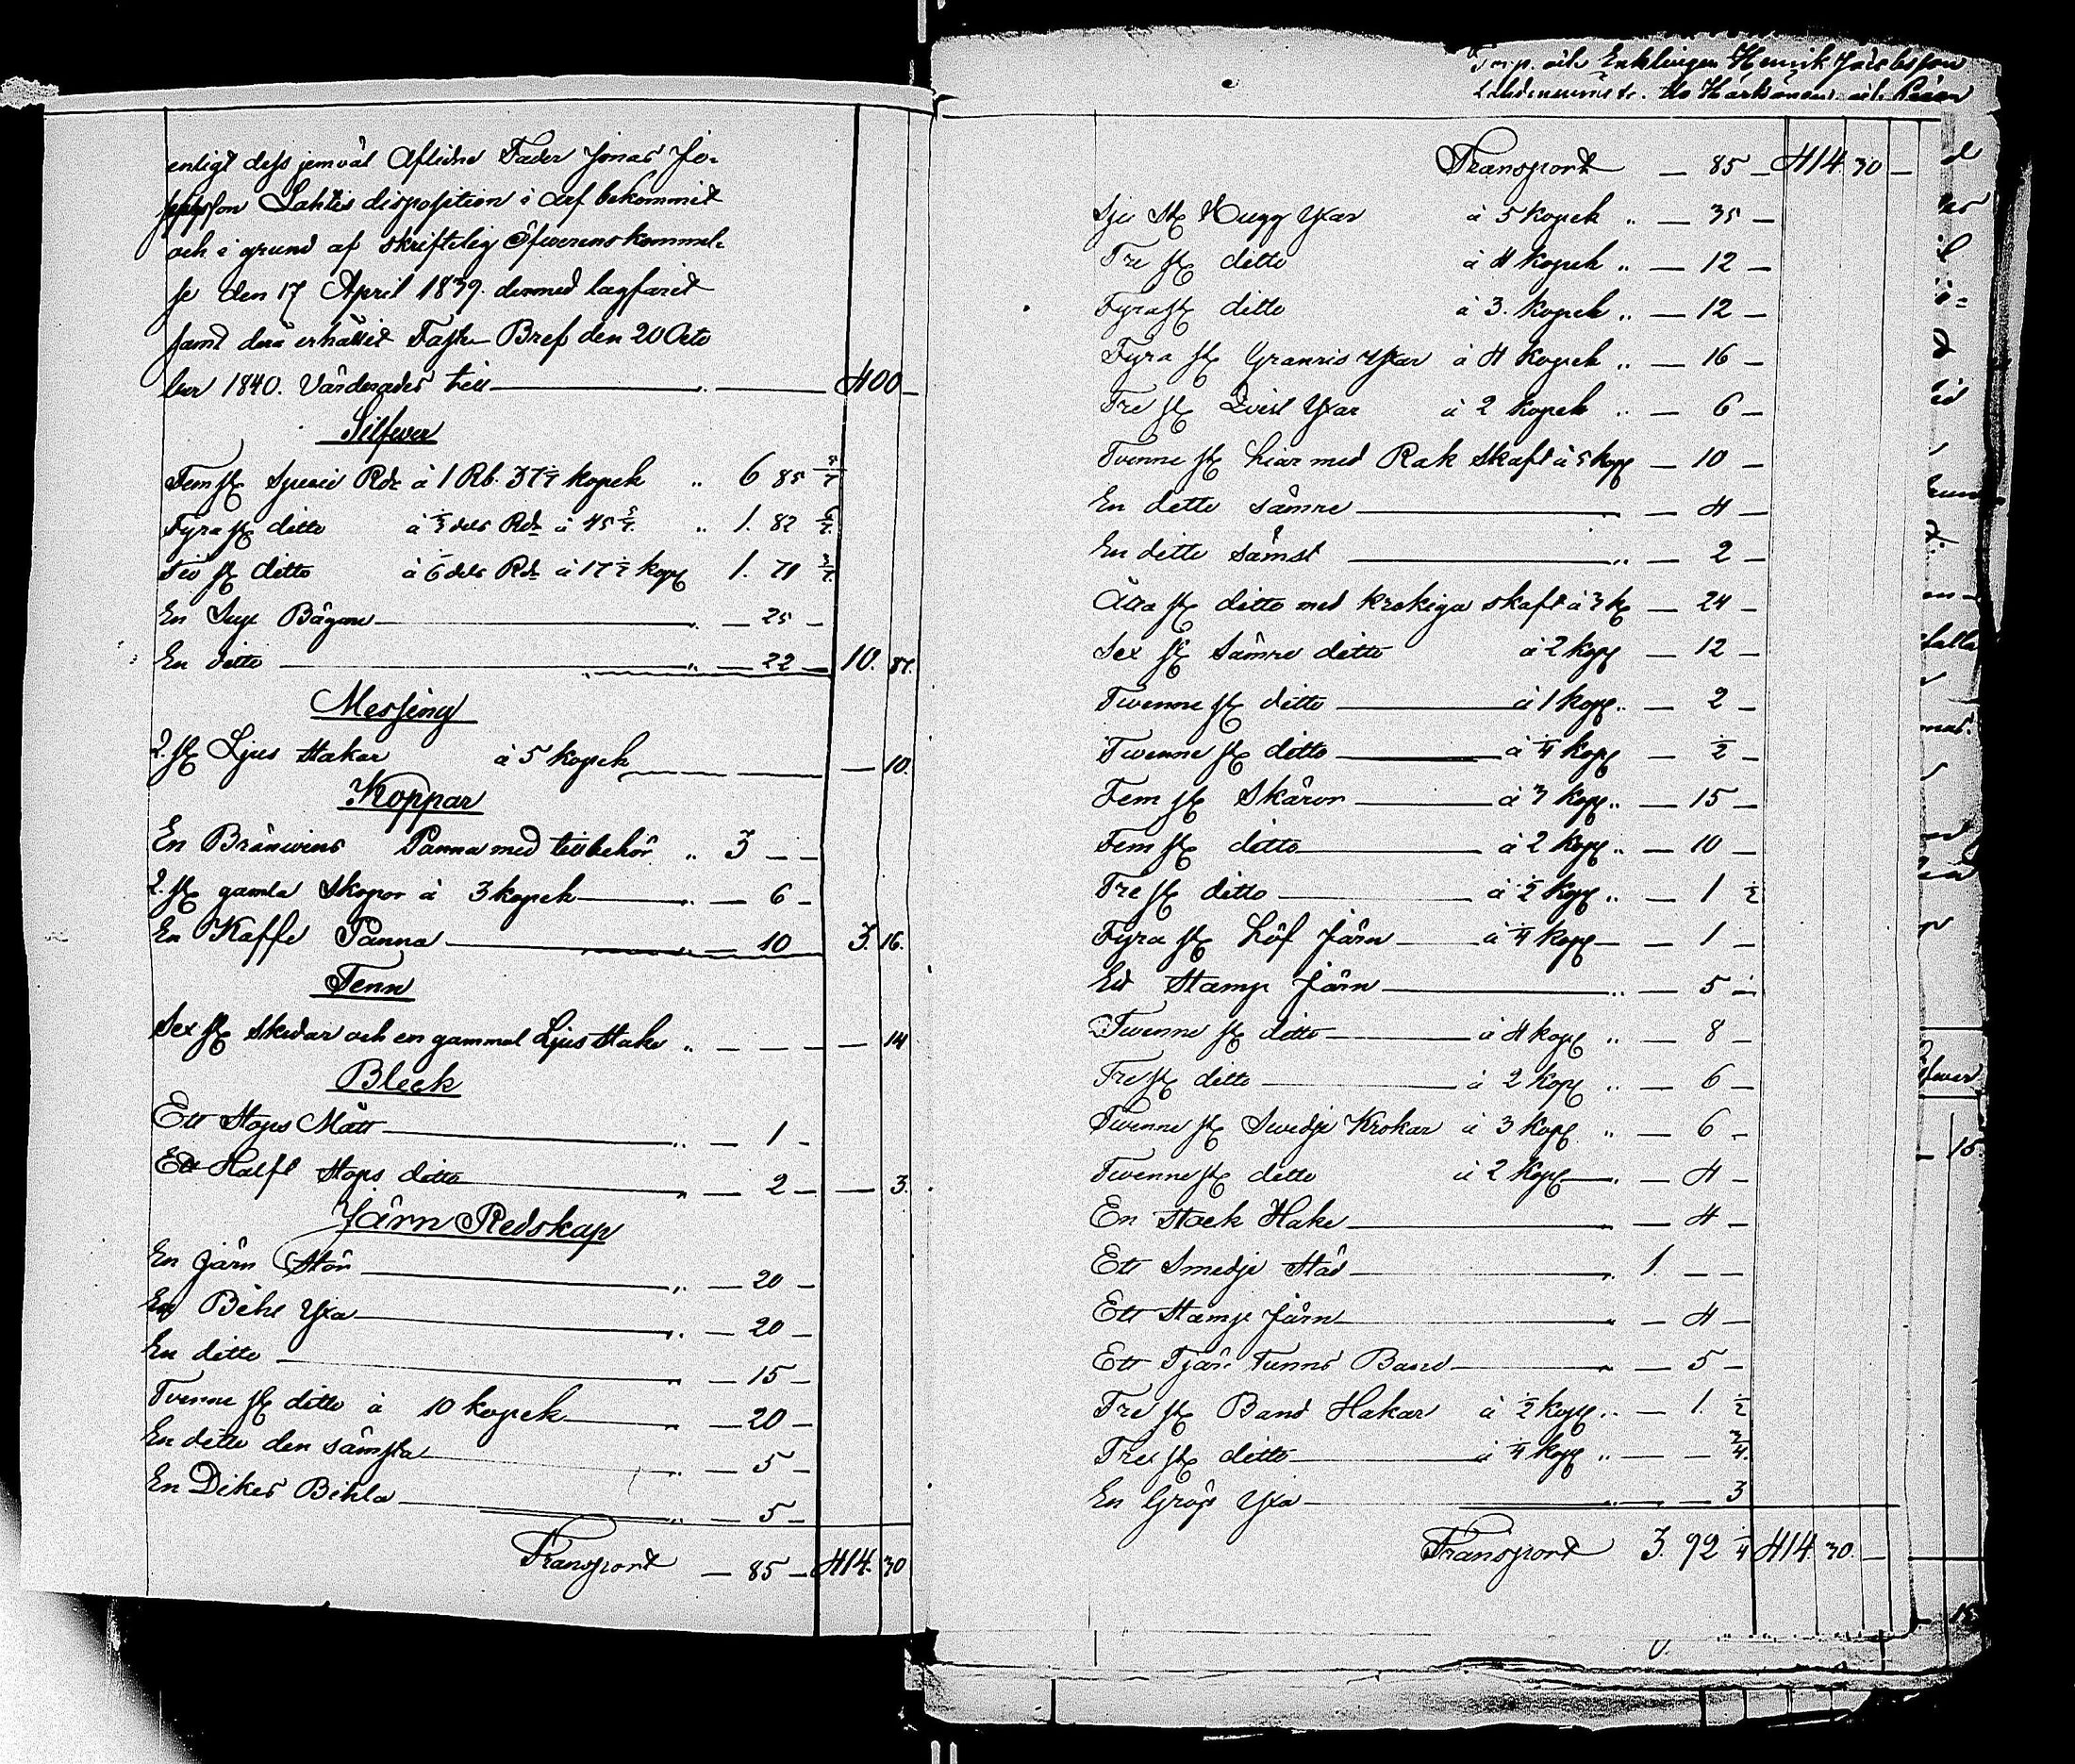 enligt dess jemväl Aflidne Fader Jonas Jo-
sephsson Lahtis disposition i arf bekommit
och i grund af skriftelig Öfverenskommel-
se den 17 April 1839. dermed lagfarit
samt derå erhållit Faste Bref den 20 Octo
ber 1840. Värderades till 400 —
Silfver
Fem st Specie Rdr à 1 Rb. 37 1/7 kopek „ 6 85 5/7
Fyra st ditto à 1/3 dels Rdr à 45 5/7. „ 1. 82 6/7.
Tio st ditto à 1/6 dels Rdr à 17 1/7 kop 1. 71 3/7.
En Sup Bägare „ — 25 —
En ditto „ — 22 — 10. 87.
Messing
2. st Ljus Stakar à 5 kopek — 10.
Koppar
En Bränvins Panna med tillbehör „ 3 — —
2. st gamla Skopor à 3 kopek „ — 6 —
En Kaffe Panna „ — 10 3. 16.
Tenn
Sex st Skedar och en gammal Ljus Stake „ — — — — 14
Bleck
Ett Stops Mått „ — 1 —
Ett Halft Stops ditto „ — 2 — — 3.
Järn Redskap
En Järn Stör „ — 20 —
En Bihl Yxa „ — 20 —
En ditto „ — 15 —
Tvenne st ditto à 10 kopek „ — 20 —
En ditto den sämsta „ — 5 —
En Dikes Bihla „ — 5 —
Transport — 85 — 414. 30
Enklingen Henrik Jacobsson
Transport — 85 — 414. 30 —
Sju st Hugg Yxar à 5 kopek „ — 35 —
Tre st ditto à 4 kopek „ — 12 —
Fyra st ditto à 3. kopek „ — 12 —
Fyra st Granris Yxar à 4 kopek „ — 16 —
Tre st Qvist Yxar à 2 kopek „ — 6 —
Tvenne st Liar med Rak Skaft à 5 kop — 10 —
En ditto sämre — 4 —
En ditto sämst „ — 2 —
Åtta st ditto med krokiga skaft à 3 k — 24 —
Sex st sämre ditto à 2 kop — 12 —
Twenne st ditto à 1 kop „ — 2 —
Twenne st ditto à 1/4 kop — 1/2 —
Fem st Skäror à 3 kop „ — 15 —
Fem st ditto à 2 kop „ — 10 —
Tre st ditto à 1/2 kop „ — 1 1/2
Fyra st Löf Järn à 1/4 kop — 1 —
Ett Stamp Järn „ — 5 —
Twenne st ditto à 4 kop „ — 8 —
Tre st ditto à 2 kop „ — 6 —
Twenne st Swedje Krokar à 3 kop „ — 6 —
Twenne st ditto à 2 kop „ — 4 —
En Stock Hake — 4 —
Ett Smedje Städ „ 1. — —
Ett Stamp Järn „ — 4 —
Ett Tjär Tunns Band „ — 5 —
Tre st Band Hakar à 1/2 kop „ — 1. 1/2
Tre st ditto à 1/4 kop „ — — 3/4.
En Gröp Yxa „ — — 3
Transport 3. 92 1/4 414. 30 —